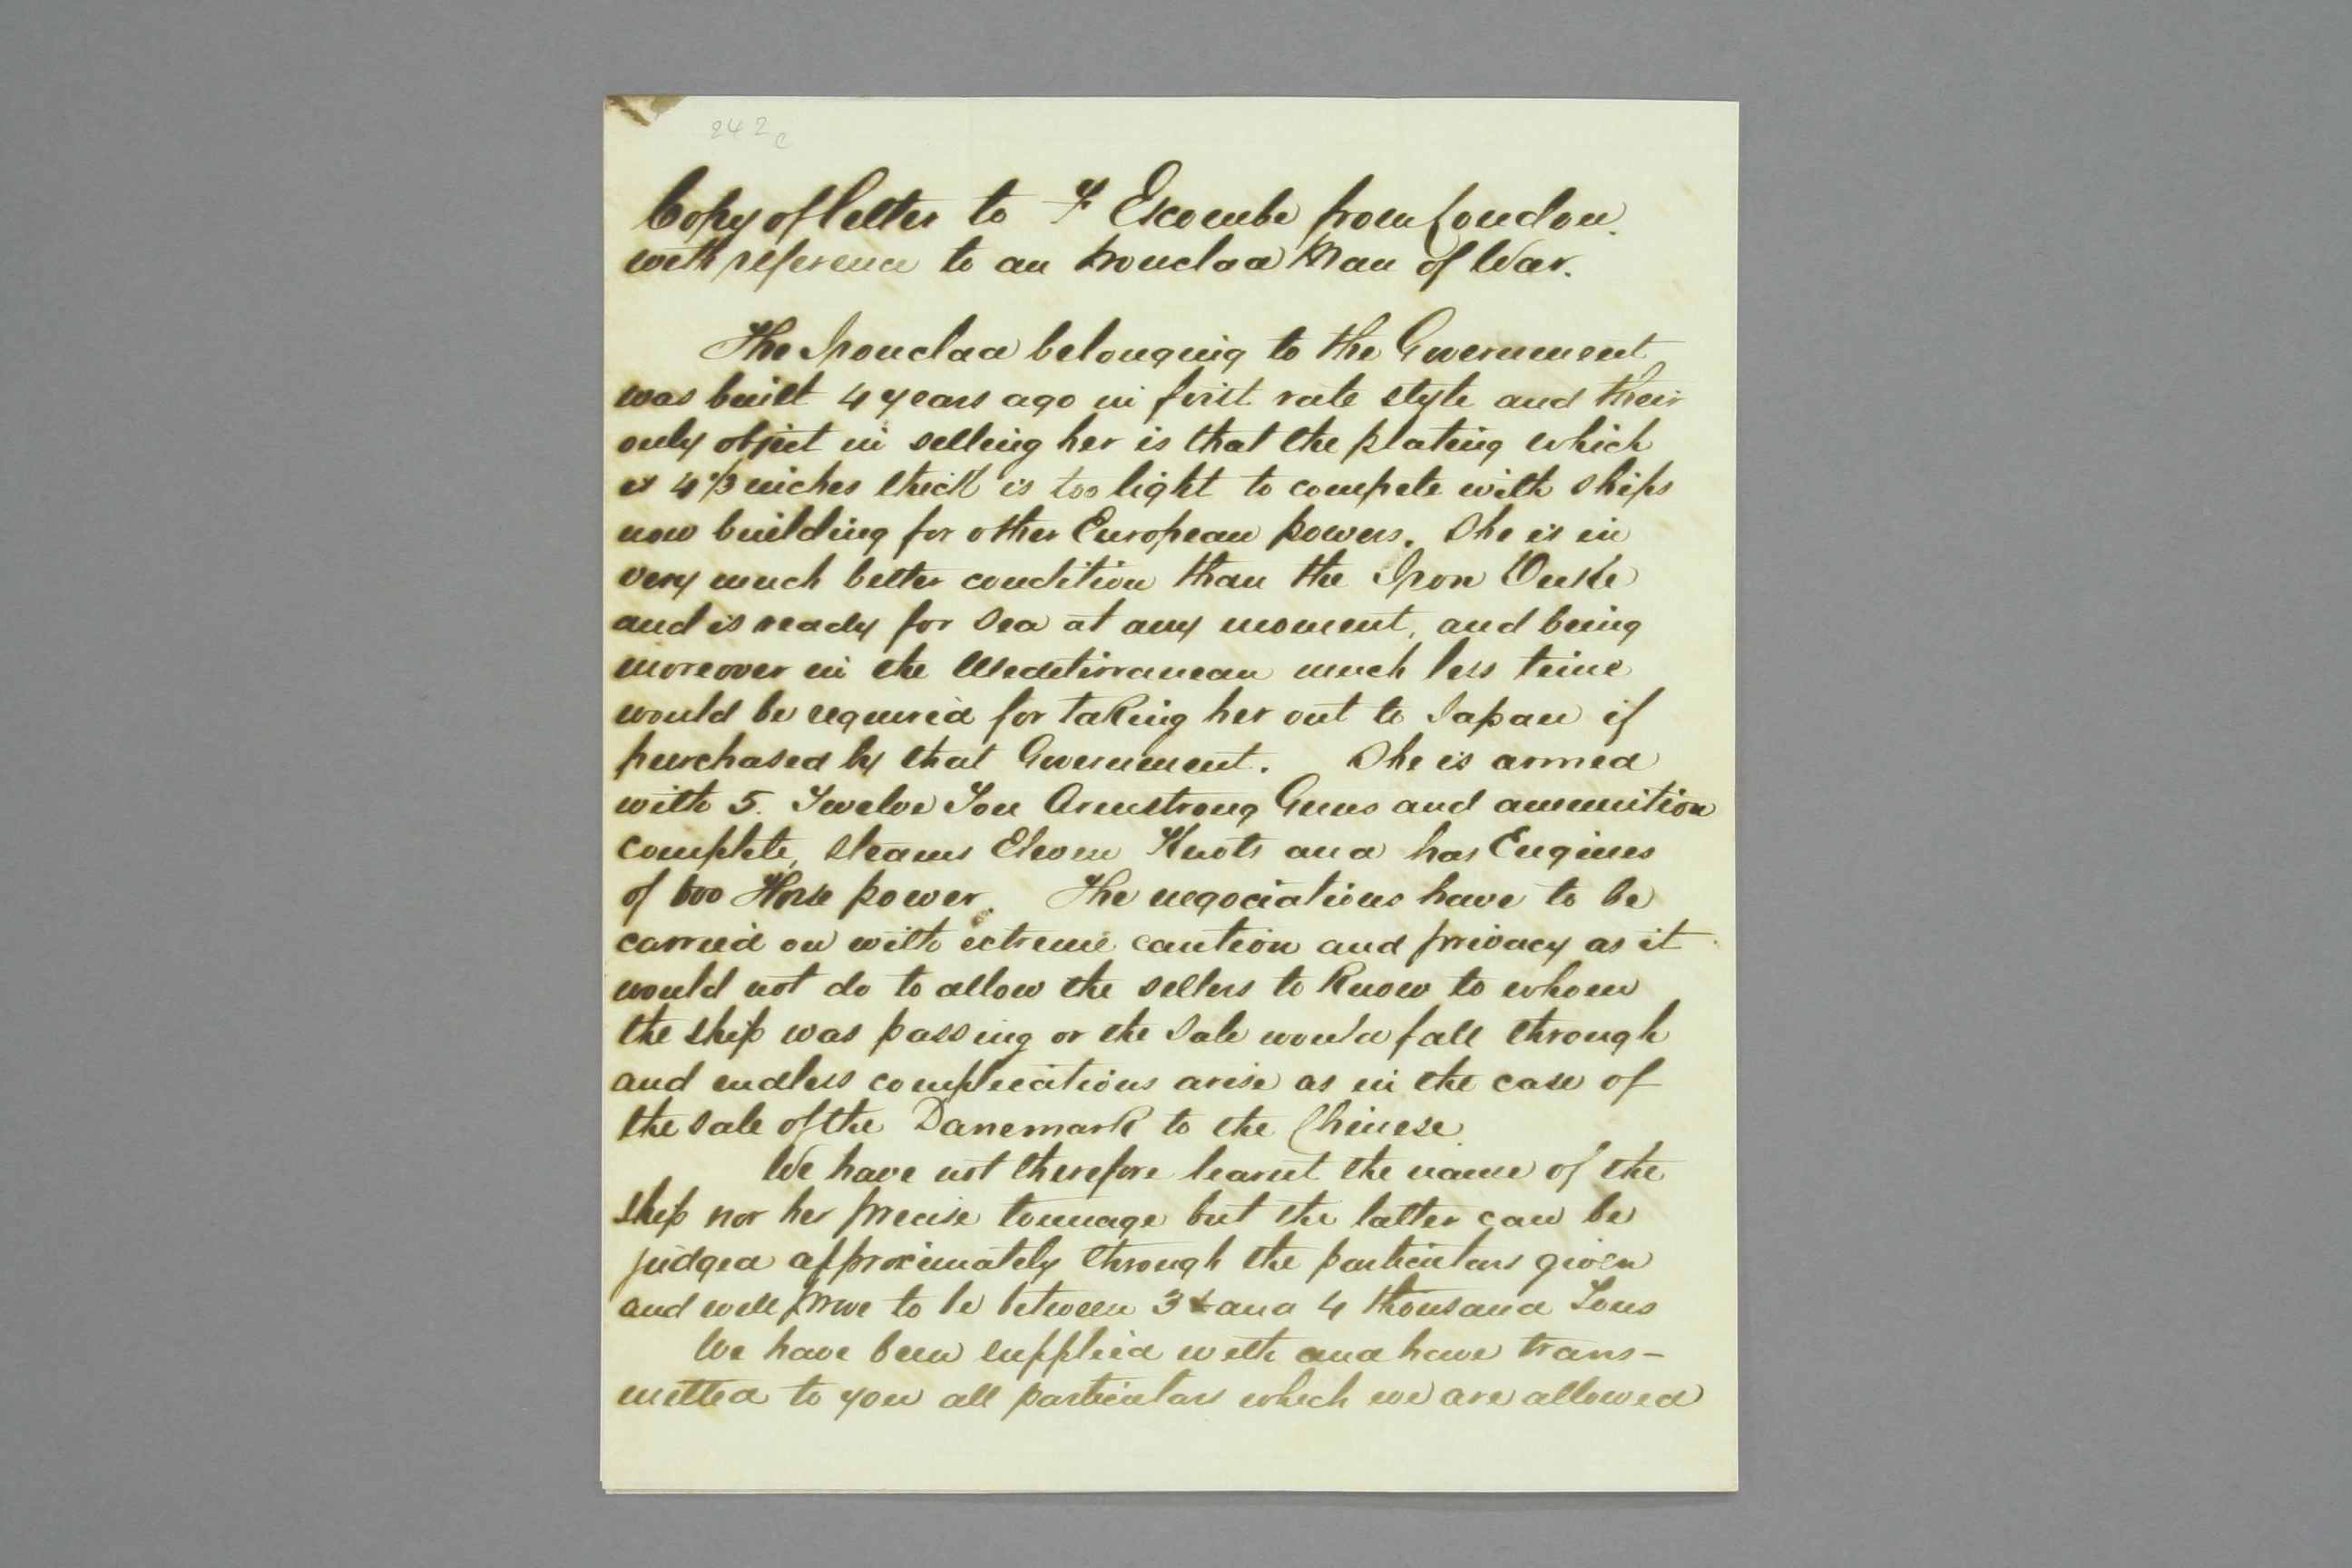 242c
Copy of letter to F Escombe from London.
with reference to an Ironclad Man of War.
The Ironclad belonging to the Government
was built 4 years ago in first rate style and their
only object in selling her is that the plating which
is 4½ inches thick is too light to compete with ships
now building for other European powers. She is in
very much better condition than the Iron Duke
and is ready for sea at any moment, and being
moreover in the Mediterranean much less time
would be required for taking her out to Japan if
purchased by that Government. She is armed
with 5. Twelve Ton Armstrong Guns and ammunition
complete, steams Eleven Knots and has Engines
of 600 Horse power. The negociations have to be
carried on with extreme caution and privacy as it
would not do to allow the sellers to know to whom
the ship was passing or the sale would fall through
and endless complications arise as in the case of
the sale of the Danemark to the Chinese.
We have not therefore learnt the name of the
ship nor her precise tonnage but the latter can be
judged approximately through the particulars given
and will prove to be between 3 and 4 thousand Tons
We have been supplied with and have trans-
mitted to you all particulars which we are allowed